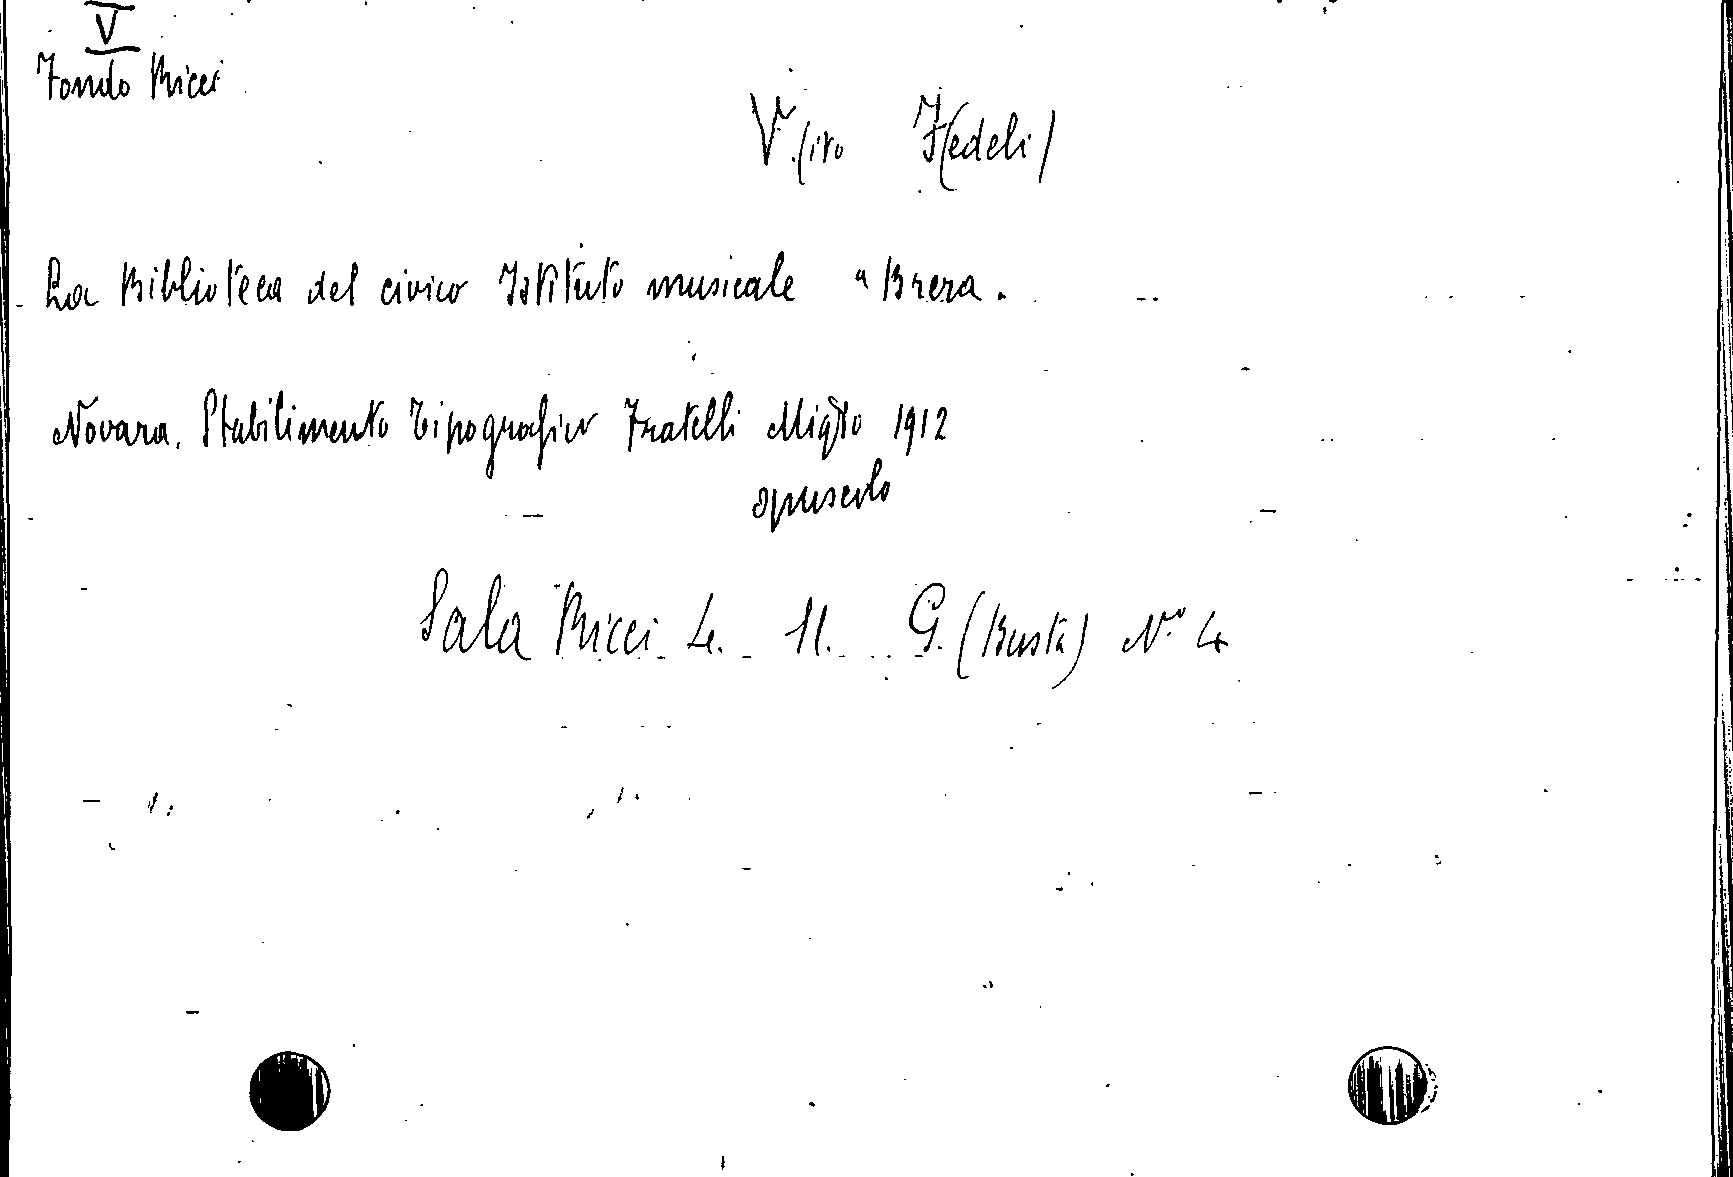 V
Fondo Ricci
V.(ito F(edeli)
La Biblioteca del civico Istituto musicale " Brera.
Novara. Stabilimento Tipografico Fratelli Miglio 1912
opuscolo
Sala Ricci L. 11. G. (Busta) N.º 4